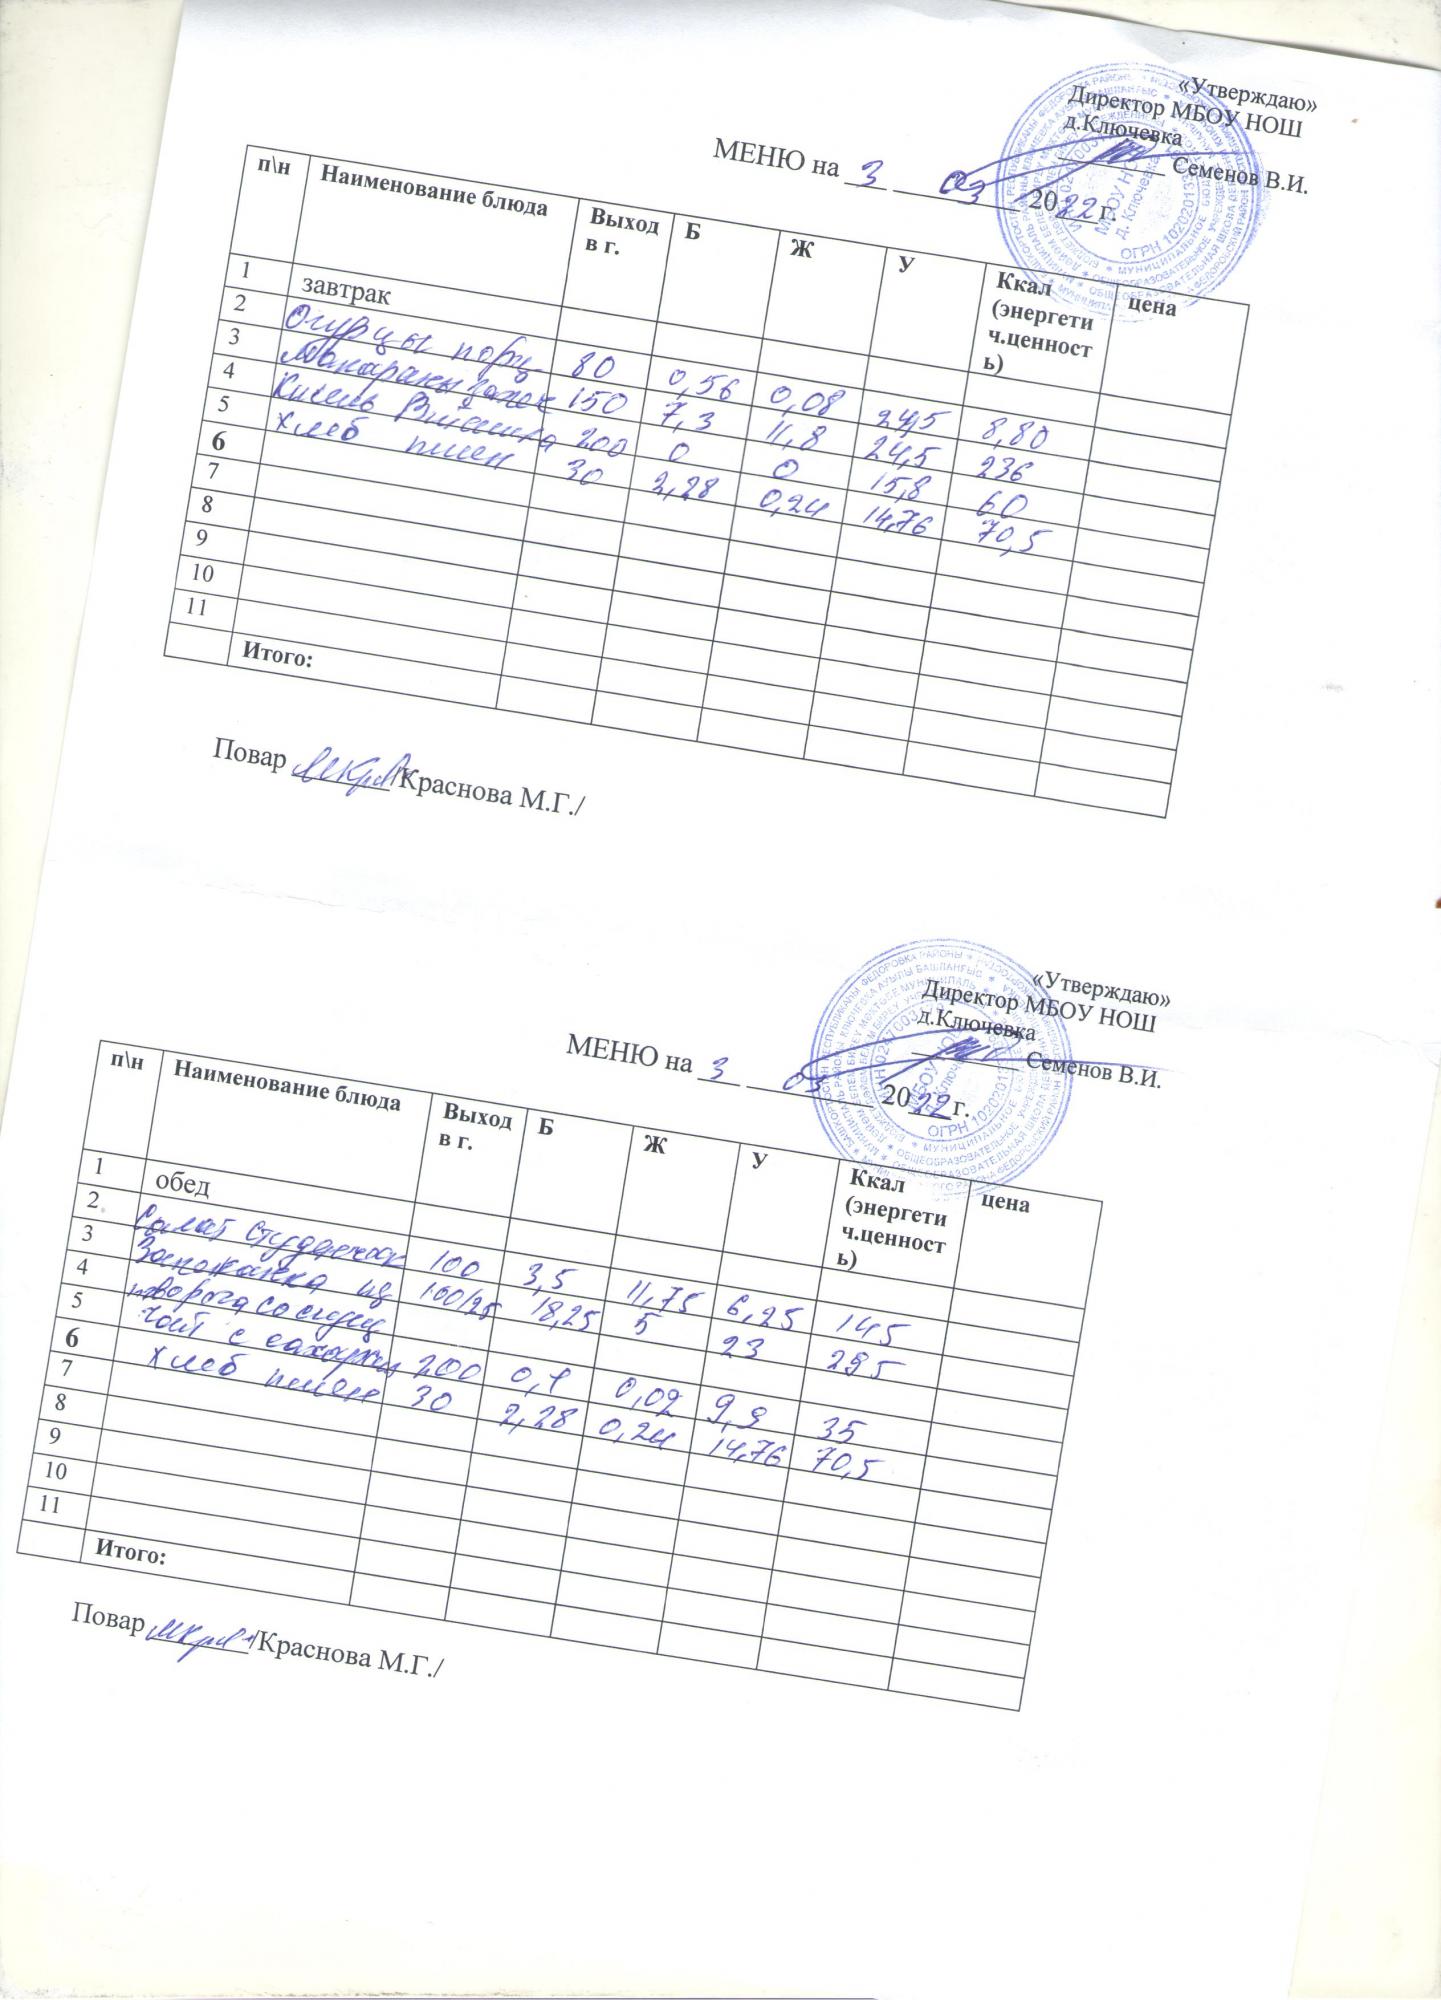 «Утверждаю»
Директор МБОУ НОШ
д.Ключевка
Семенов В.И.
МЕНЮ на 3 03 2022 г.
п\н Наименование блюда Выход в г. Б Ж У Ккал (энергетич.ценность) цена
1 завтрак
2 Огурцы порц 80 0,56 0,08 8,80
3 Макароны запек 150 7,3 11,8 24,5 236
4 Кисель Витошка 200 0 0 15,8 60
5 Хлеб пшен 30 2,28 0,24 14,76 70,5
6
7
8
9
10
11
Итого:
Повар /Краснова М.Г./
«Утверждаю»
Директор МБОУ НОШ
д.Ключевка
Семенов В.И.
МЕНЮ на 3 03 2022 г.
п\н Наименование блюда Выход в г. Б Ж У Ккал (энергетич.ценность) цена
1 обед
2 Салат студенческ 100 3,5 11,75 6,25 145
3 Запеканка из 100/25 18,25 5 23 295
4 творога со сгущ
5 Чай с сахаром 200 0,1 0,02 9,9 35
6 Хлеб пшен 30 2,28 0,24 14,76 70,5
7
8
9
10
11
Итого:
Повар /Краснова М.Г./